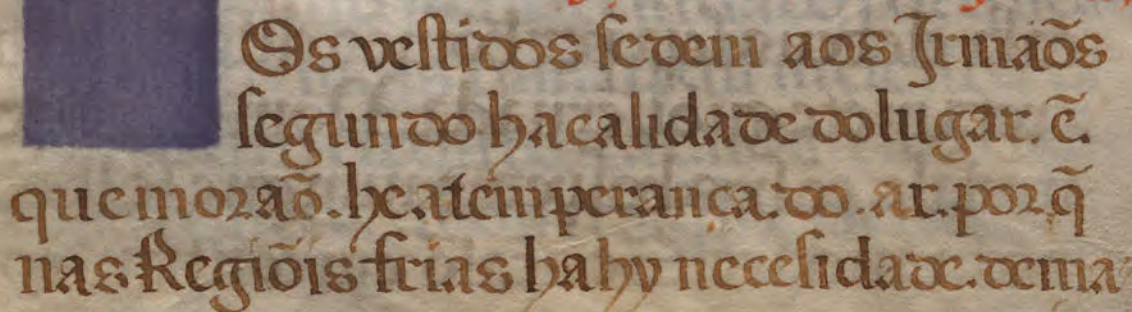 Os vestidos sedem aos Jrmaõs
segundo hacalidade dolugar. ẽ
quemoraõ. he atemperança. do. ar. por q̃
nas Regiõis frias hahy necesidade. dema